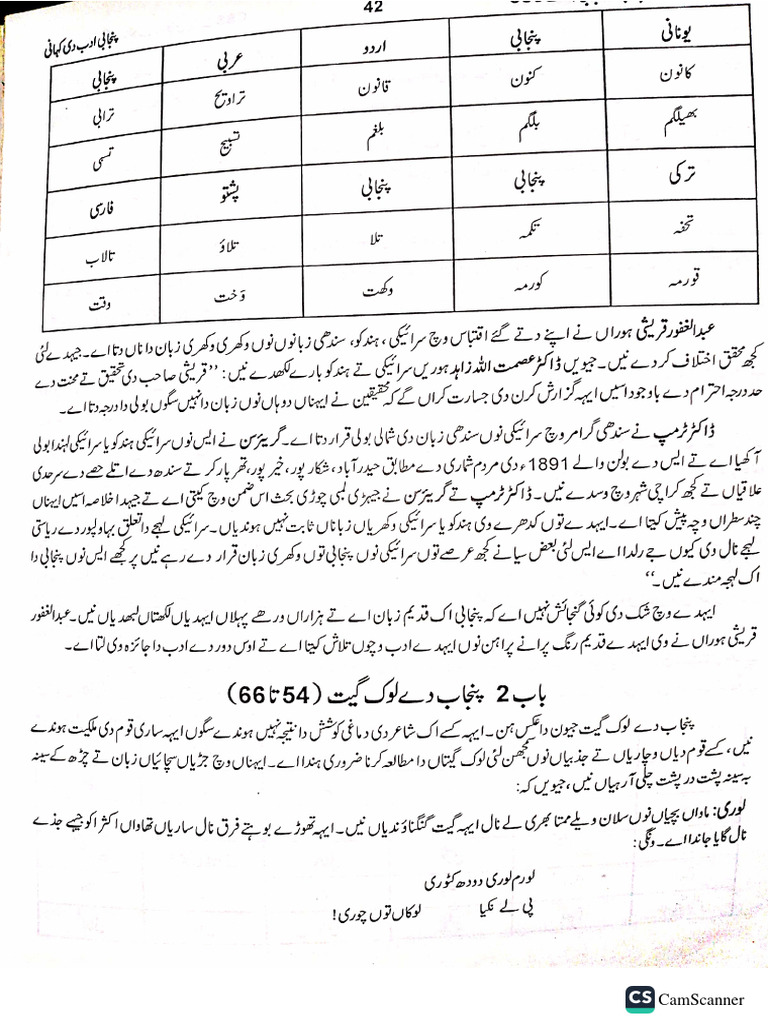 42
پنجابی ادب دی کہانی
یونانی پنجابی اردو عربی پنجابی
کانون کنون قانون تراویح ترابی
بھیلگم بلگم بلغم تسبیح تسی
ترکی پنجابی پنجابی پشتو فارسی
تحفہ تکمہ تلا تلاؤ تالاب
قورمہ کورمہ وکھت وَخت وقت
عبدالغفور قریشی ہوراں نے اپنے دتے گئے اقتباس وچ سرائیکی، ہندکو، سندھی زبانوں نوں وکھری وکھری زبان داناں دتا اے۔ جیہدے لئی
کجھ محقق اختلاف کردے نیں۔ جیویں ڈاکٹر عصمت اللہ زاہد ہوریں سرائیکی تے ہندکو بارے لکھدے نیں: ‘‘قریشی صاحب دی تحقیق تے محنت دے
حد درجہ احترام دے باوجود اسیں ایہہ گزارش کرن دی جسارت کراں گے کہ محققین نے ایہناں دوہاں نوں زبان دا نہیں سگوں بولی دا درجہ دتا اے۔
ڈاکٹر ٹرمپ نے سندھی گرامر وچ سرائیکی نوں سندھی زبان دی شمالی بولی قرار دتا اے۔ گریئرسن نے ایس نوں سرائیکی ہندکو یا سرائیکی لہندا بولی
آکھیا اے تے ایس دے بولن والے 1891ء دی مردم شماری دے مطابق حیدرآباد، شکارپور، خیرپور، تھرپارکر تے سندھ دے اتلے حصے دے سرحدی
علاقیاں تے کجھ کراچی شہر وچ وسدے نیں۔ ڈاکٹر ٹرمپ تے گریئرسن نے جیہڑی لمبی چوڑی بحث اس ضمن وچ کیتی اے تے جیہدا خلاصہ اسیں ایہناں
چند سطراں وچ پیش کیتا اے۔ ایہدے توں کدھرے وی ہندکو یا سرائیکی وکھریاں زباناں ثابت نہیں ہوندیاں۔ سرائیکی لہجے دا تعلق بہاولپور دے ریاستی
لہجے نال وی کیوں جے رلدا اے ایس لئی بعض سیانے کجھ عرصے توں سرائیکی نوں پنجابی توں وکھری زبان قرار دے رہے نیں پر کجھ ایس نوں پنجابی دا
اک لہجہ مندے نیں۔‘‘
ایہدے وچ شک دی کوئی گنجائش نہیں اے کہ پنجابی اک قدیم زبان اے تے ہزاراں ورھے پہلاں ایہدیاں لکھتاں لبھدیاں نیں۔ عبدالغفور
قریشی ہوراں نے وی ایہدے قدیم رنگ پرانے پراہن نوں ایہدے ادب وچوں تلاش کیتا اے تے اوس دور دے ادب دا جائزہ وی لتا اے۔
باب 2 پنجاب دے لوک گیت (54 تا 66)
پنجاب دے لوک گیت جیون دا عکس ہن۔ ایہہ کسے اک شاعر دی دماغی کوشش دا نتیجہ نہیں ہوندے سگوں ایہہ ساری قوم دی ملکیت ہوندے
نیں، کسے قوم دیاں وچاریاں تے جذبیاں نوں سمجھن لئی لوک گیتاں دا مطالعہ کرنا ضروری ہندا اے۔ ایہناں وچ جڑیاں سچائیاں زبان تے چڑھ کے سینہ
بہ سینہ پشت در پشت چلی آ رہیاں نیں، جیویں کہ:
لوری: ماواں بچیاں نوں سلان ویلے ممتا بھری لے نال ایہہ گیت گنگناؤندیاں نیں۔ ایہہ تھوڑے بوہتے فرق نال ساریاں تھاواں اکثر اکو جیہے جذبے
نال گایا جاندا اے۔ ونگی:
لورم لوری دودھ کٹوری
پی لے نکیا لوکاں توں چوری!
CS CamScanner